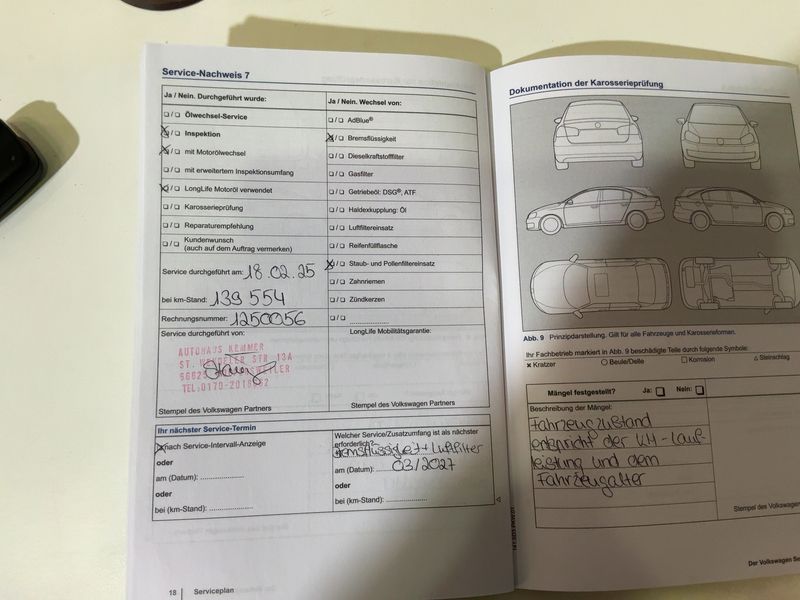 Service-Nachweis 7
Ja / Nein. Durchgeführt wurde:
Ölwechsel-Service
Inspektion
mit Motorölwechsel
mit erweitertem Inspektionsumfang
LongLife Motoröl verwendet
Karosserieprüfung
Reparaturempfehlung
Kundenwunsch
(auch auf dem Auftrag vermerken)
Service durchgeführt am: 18.02.25
bei km-Stand: 139 554
Rechnungsnummer: 1250056
Service durchgeführt von:
AUTOHAUS KEMMER
ST. WENDELER STR 13A
TEL:0170-20
Stempel des Volkswagen Partners
Ja / Nein. Wechsel von:
AdBlue®
Bremsflüssigkeit
Dieselkraftstofffilter
Gasfilter
Getriebeöl: DSG®, ATF
Haldexkupplung: Öl
Luftfiltereinsatz
Reifenfüllflasche
Staub- und Pollenfiltereinsatz
Zahnriemen
Zündkerzen
LongLife Mobilitätsgarantie:
Stempel des Volkswagen Partners
Ihr nächster Service-Termin
nach Service-Intervall-Anzeige
oder
am (Datum):
oder
bei (km-Stand):
Welcher Service/Zusatzumfang ist als nächster
erforderlich?
Bremsflüssigkeit + Luftfilter
am (Datum): 03/2027
oder
bei (km-Stand):
18 | Serviceplan
Dokumentation der Karosserieprüfung
Abb. 9 Prinzipdarstellung. Gilt für alle Fahrzeuge und Karosserieformen.
Ihr Fachbetrieb markiert in Abb. 9 beschädigte Teile durch folgende Symbole:
x Kratzer ○ Beule/Delle □ Korrosion △ Steinschlag
Mängel festgestellt? Ja: Nein:
Beschreibung der Mängel:
Fahrzeugzustand
entspricht der KM-Lauf-
leistung und dem
Fahrzeugalter
Stempel des Volkswagen
Der Volkswagen Se